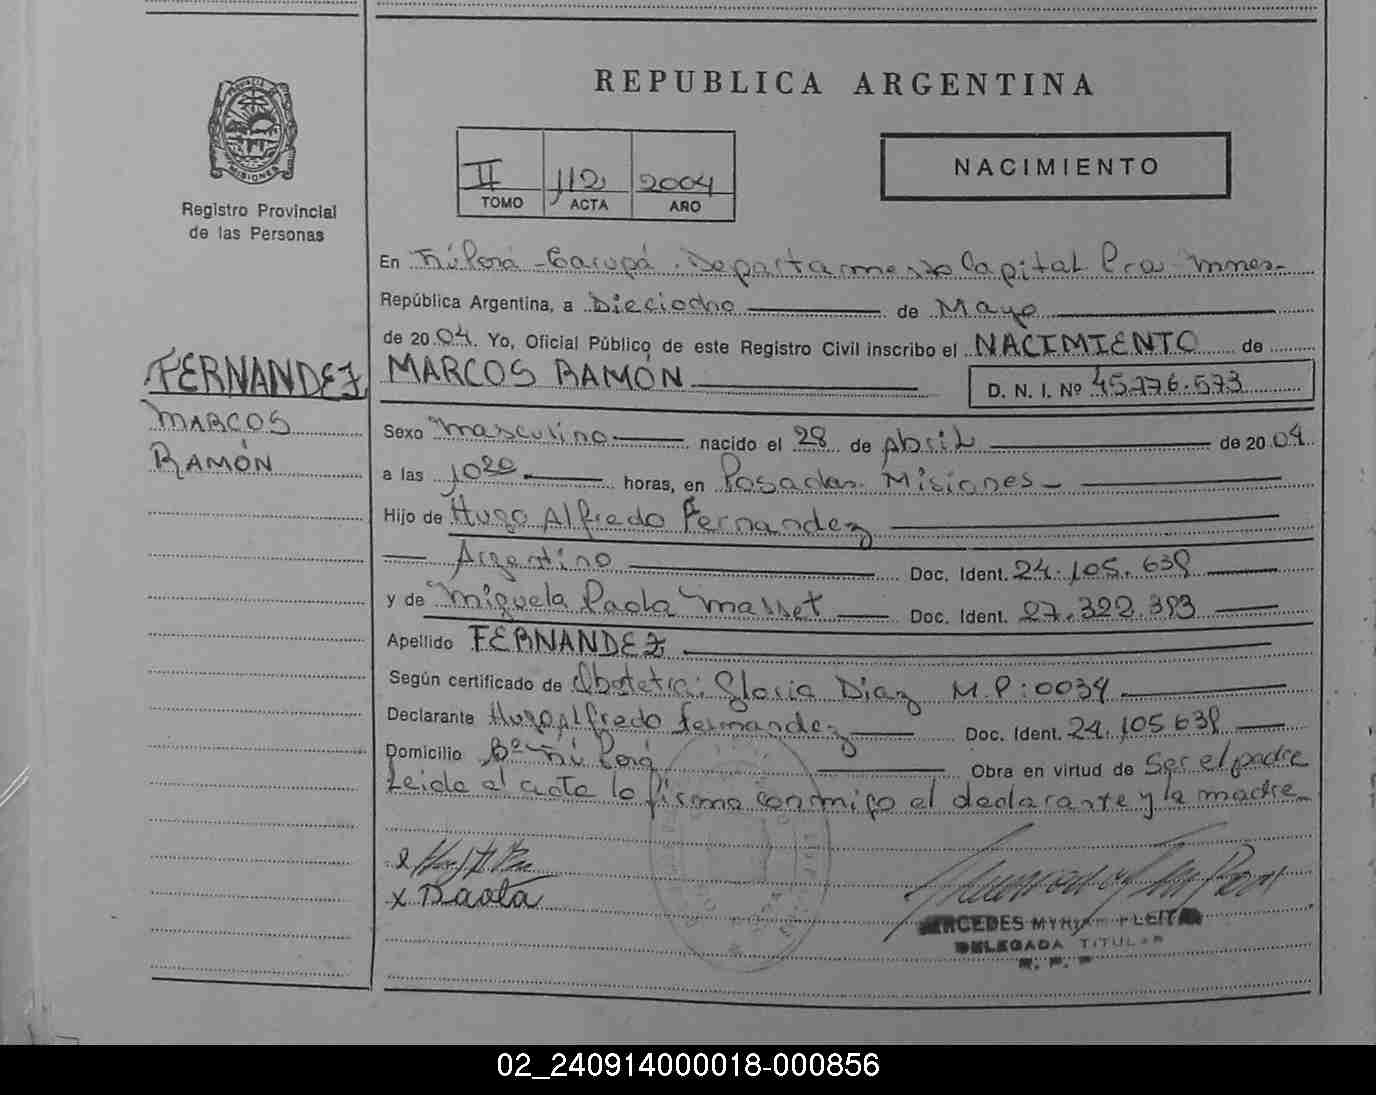 REPUBLICA ARGENTINA
PROVINCIA DE MISIONES
Registro Provincial
de las Personas
II 112 2004
TOMO ACTA AÑO
NACIMIENTO
En Ñú Porá - Garupá . Departamento Capital Pcia
República Argentina, a Dieciocho de Mayo
de 2004. Yo, Oficial Público de este Registro Civil inscribo el NACIMIENTO de
FERNANDEZ
MARCOS
RAMÓN
MARCOS RAMÓN
D. N. I. Nº 45.776.573
Sexo masculino nacido el 28 de Abril de 2004
a las 10 20 horas, en Posadas. Misiones
Hijo de Hugo Alfredo Fernandez
Argentino Doc. Ident. 24.105.638
y de Miguela Paola Masset Doc. Ident. 27.322.383
Apellido FERNANDEZ
Según certificado de Obstetra: Gloria Diaz M.P:0034
Declarante Hugo Alfredo Fernandez Doc. Ident. 24.105.638
Domicilio Bº Ñú Porá Obra en virtud de Ser el padre
Leida el acta lo firma conmigo el declarante y la madre
x Paola
MERCEDES MYRIAM FLEITA
DELEGADA TITULAR
R. P. P
02_240914000018-000856